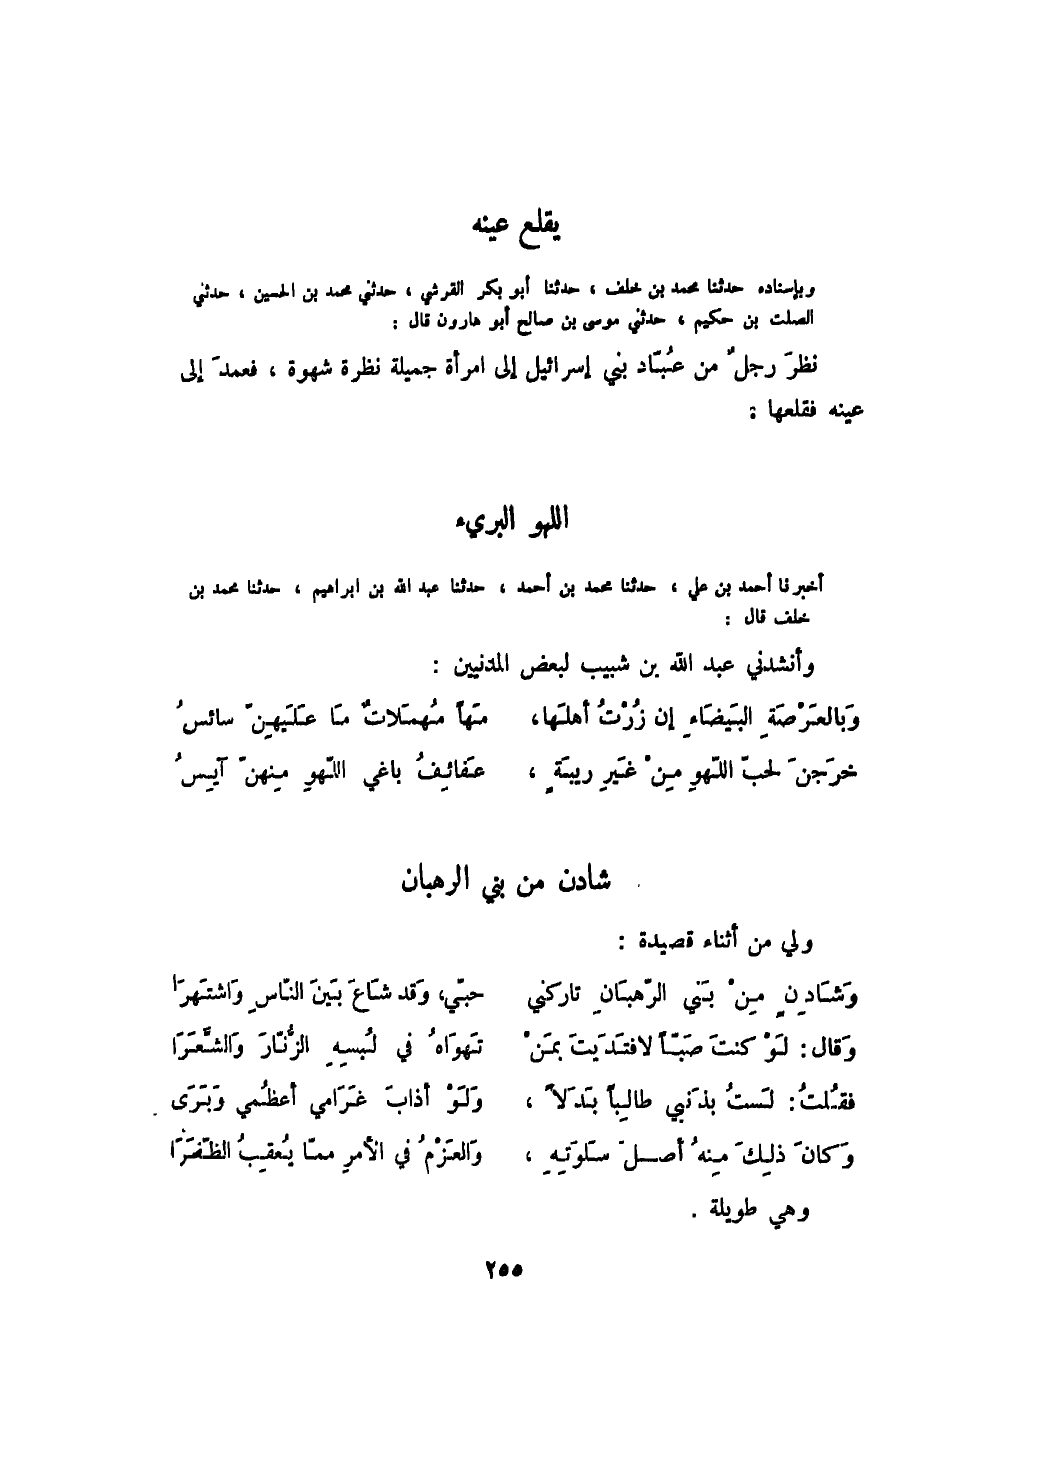 يقلع عينه
وبإسناده حدثنا محمد بن خلف ، حدثنا أبو بكر القرشي ، حدثني محمد بن الحسين ، حدثني
الصلت بن حكيم ، حدثني موسى بن صالح أبو هارون قال :
نظرَ رجلٌ من عبّاد بني إسرائيل إلى امرأة جميلة نظرة شهوة ، فعمدَ إلى
عينه فقلعها :
اللهو البريء
أخبرنا أحمد بن علي ، حدثنا محمد بن أحمد ، حدثنا عبد الله بن ابراهيم ، حدثنا محمد بن
خلف قال :
وأنشدني عبد الله بن شبيب لبعض المدنيين :
وَبالعَرْصَةِ البَيضَاءِ إن زُرْتُ أهلَها، مَهاً مُهمَلاتٌ مَا عَلَيهِنّ سائسُ
خرَجنَ لحبّ اللّهوِ مِنْ غَيرِ ريبَةٍ ، عَفائِفُ باغي اللّهوِ مِنهنّ آيِسُ
شادن من بني الرهبان
ولي من أثناء قصيدة :
وَشَادِنٍ مِنْ بَني الرّهبَانِ تاركني حبّي، وَقد شَاعَ بَينَ النّاسِ وَاشتَهرَا
وَقال: لَوْ كنتَ صَبّاً لافتَدَيتَ بمَنْ تَهوَاهُ في لُبسِهِ الزُّنّارَ وَالشَّعَرَا
فقُلتُ: لَستُ بذَنبي طالِباً بَدَلاً ، وَلَوْ أذابَ غَرَامي أعظُمي وَبَرَى
وَكانَ ذلِكَ مِنهُ أصلَ سَلوَتِهِ ، وَالعَزْمُ في الأمرِ ممّا يُعقِبُ الظّفَرَا
وهي طويلة .
٢٥٥